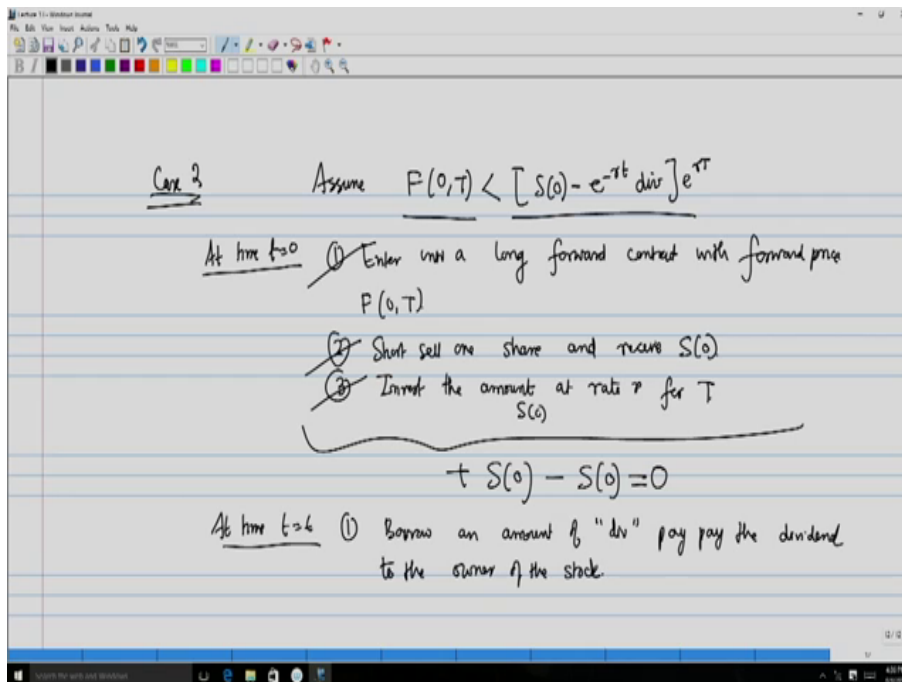 Lecture 13 - Windows Journal
File Edit View Insert Actions Tools Help
B I
Case 2 Assume F(0,T) < [S(0) - e^{-rt} div] e^{rT}
At time t=0 ① Enter into a long forward contract with forward price
F(0,T)
② Short sell one share and receive S(0)
③ Invest the amount at rate r for T
S(0)
+ S(0) - S(0) = 0
At time t=t ① Borrow an amount of "div" pay pay the dividend
to the owner of the stock.
Search the web and Windows